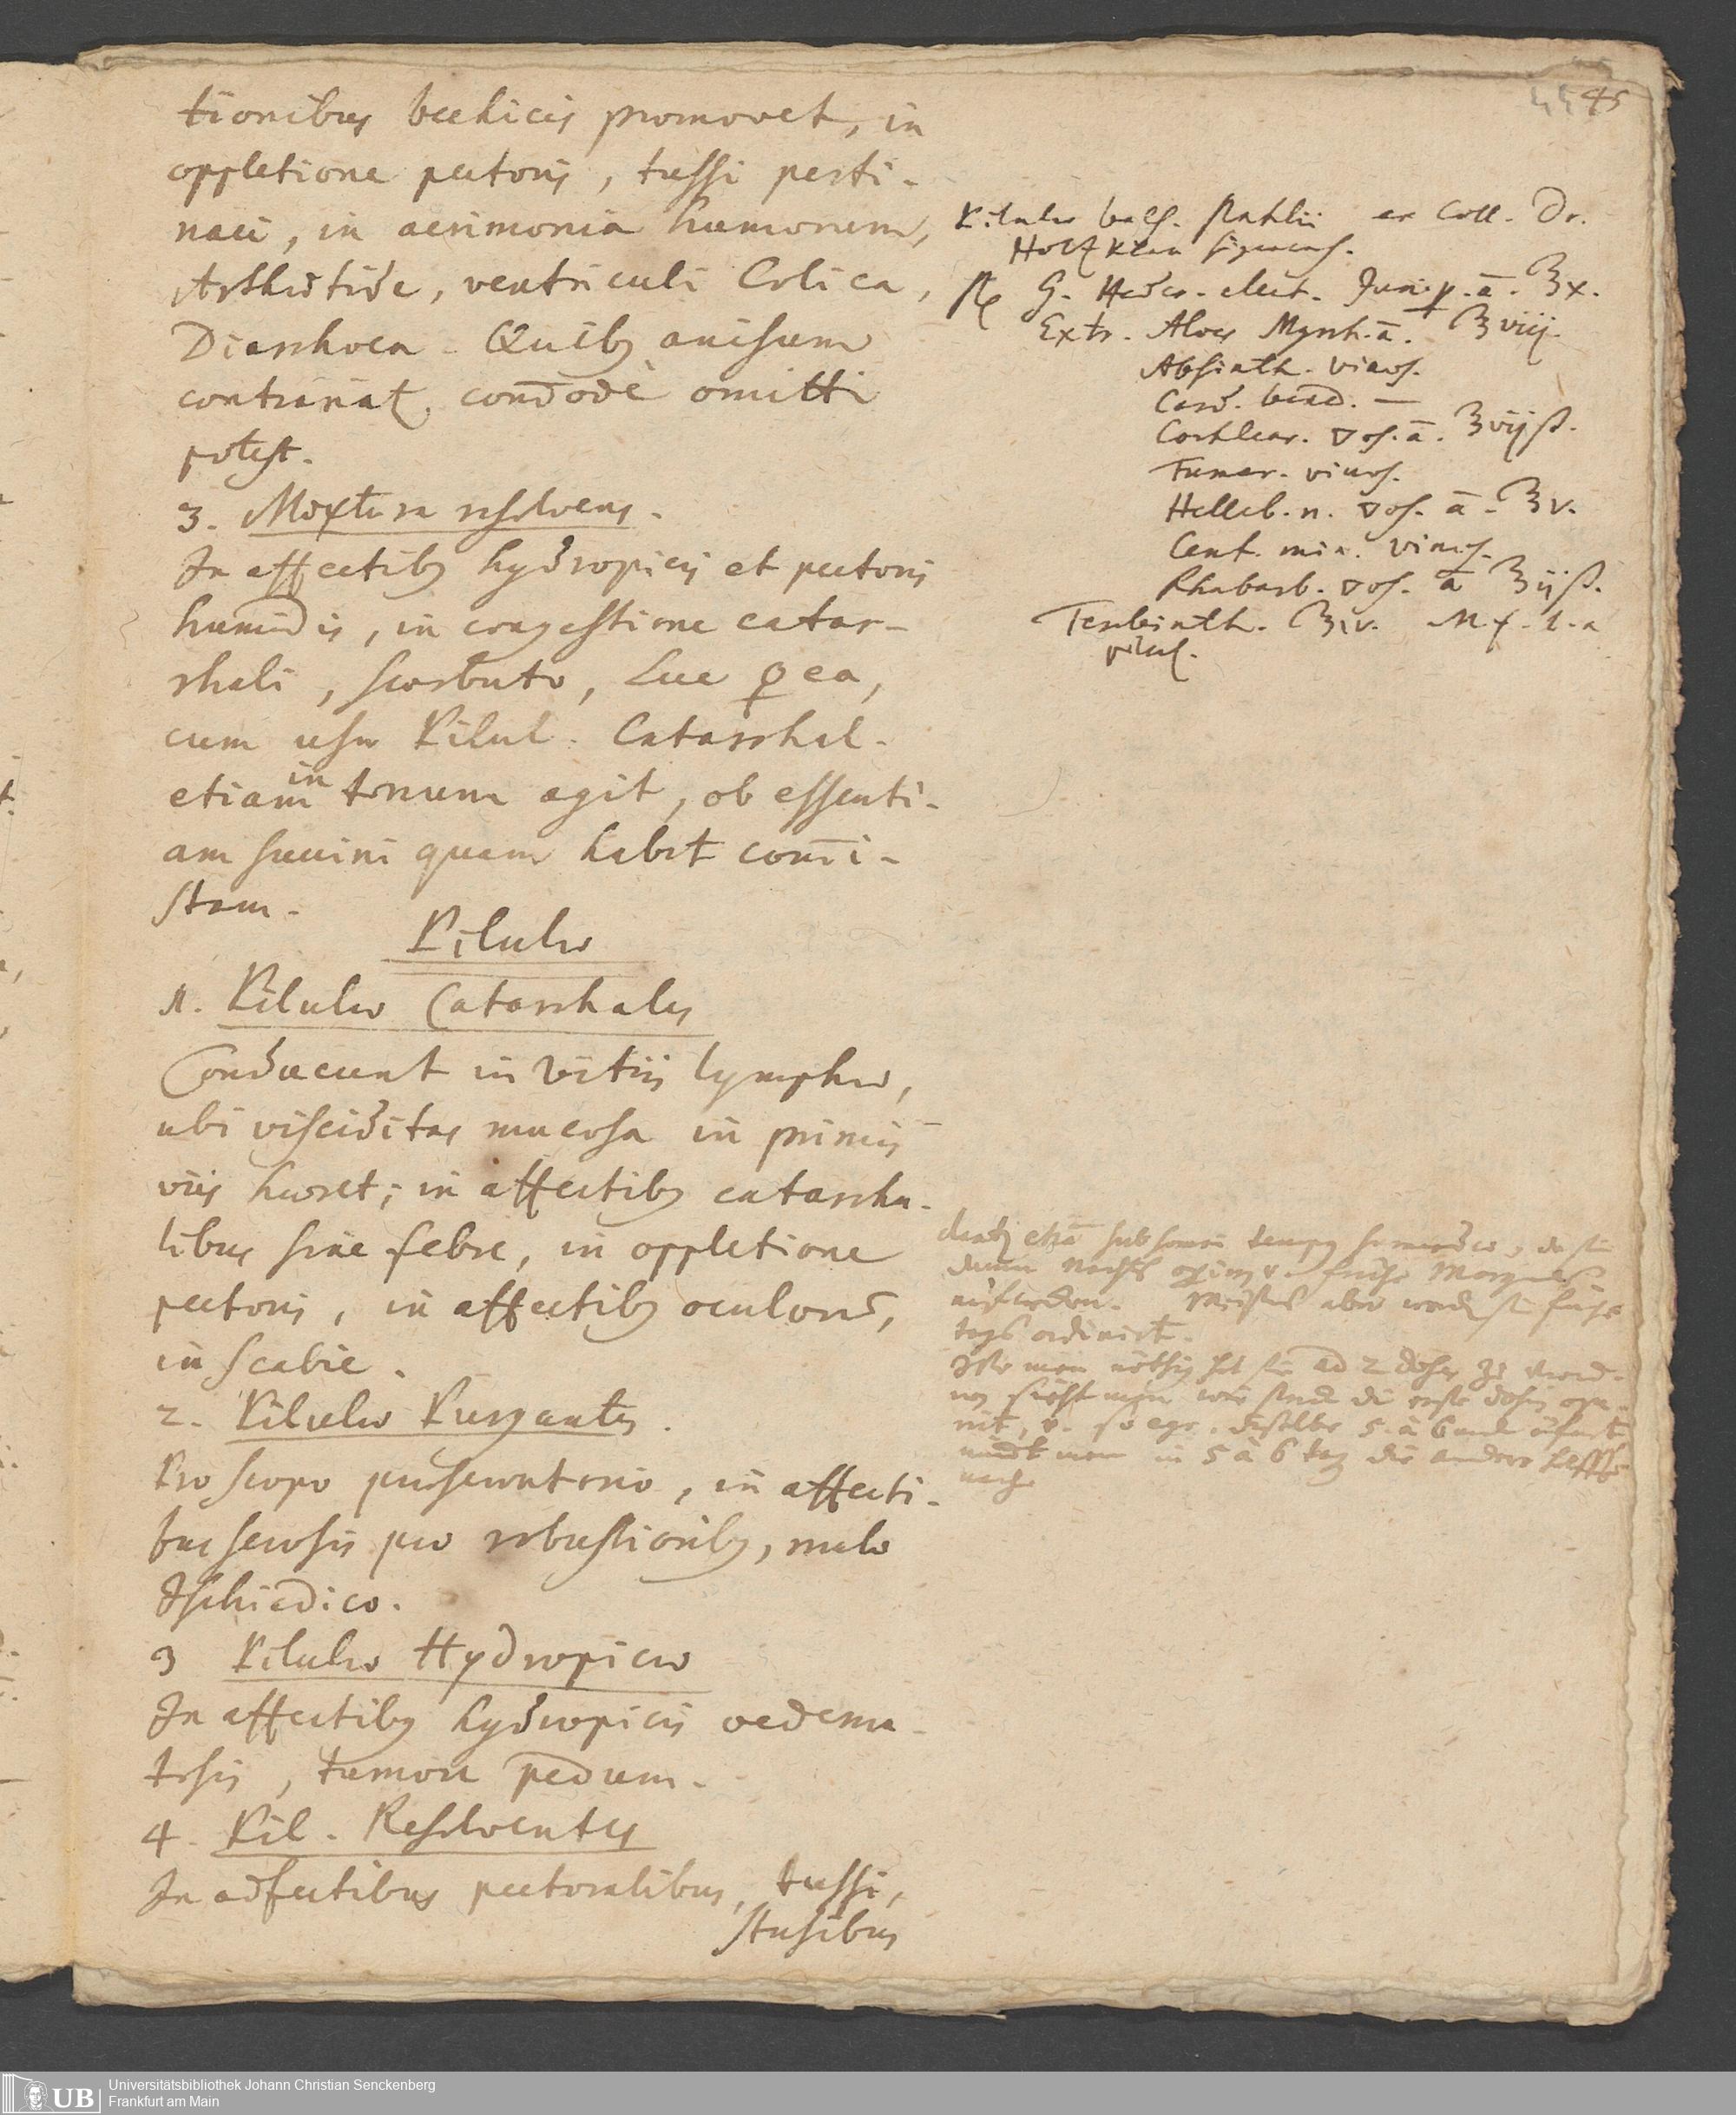 45
tionibus bechicis promovet, in
oppletione pectoris, tussi perti-
naci, in acrimonia humorum,
Arthritide, ventriculi Colica,
Diarrhoea. Quib9 anisum
contrariat, com̄odè omitti
potest.
3. Mixtura resolvens.
In affectib9 hydropicis et pectoris
humidis, in congestione catar-
rhali, scorbuto, Lue ♀ea,
cum usu Pilul. Catarrhal.
etiam in tonum agit, ob essenti-
am succini quam habet com̄i-
stam.
Pilulæ
1. Pilulæ Catarrhales
Conducunt in vitiis lymphæ,
ubi visciditas mucosa in primis
viis hæret; in affectib9 catarrha-
libus sine febre, in oppletione
pectoris, in affectib9 oculorū,
in scabie.
2. Pilulæ Purgantes.
Pro scopo præservatorio, in affecti-
bus serosis pro robustiorib9, malo
Ischiadico.
3 Pilulæ Hydropicæ
In affectib9 hydropicis oedema-
tosis, tumore pedum.
4. Pil. Resolventes
In adfectibus pectoralibus, tussi,
stasibus
Pilulæ bals. Stahlii ex Coll. Dr.
℞ G. Heder. elect. Junip. ā. ʒx.
Extr. Aloes Myrrh. ā. ʒviij.
Absinth. vinos.
Card. bened. —
Cochlear. ▽os. ā. ʒvijß.
Fumar. vinos.
Helleb. n. ▽os. ā. ʒv.
Cent. min. vinos.
Rhabarb. ▽os. ā ʒijß.
Terebinth. ʒiv. M. f. l. a
pilul.
tags ordinirt.
nim̄t man in 5 à 6 tag die andere helffte
nach
Universitätsbibliothek Johann Christian Senckenberg
Frankfurt am Main
UB